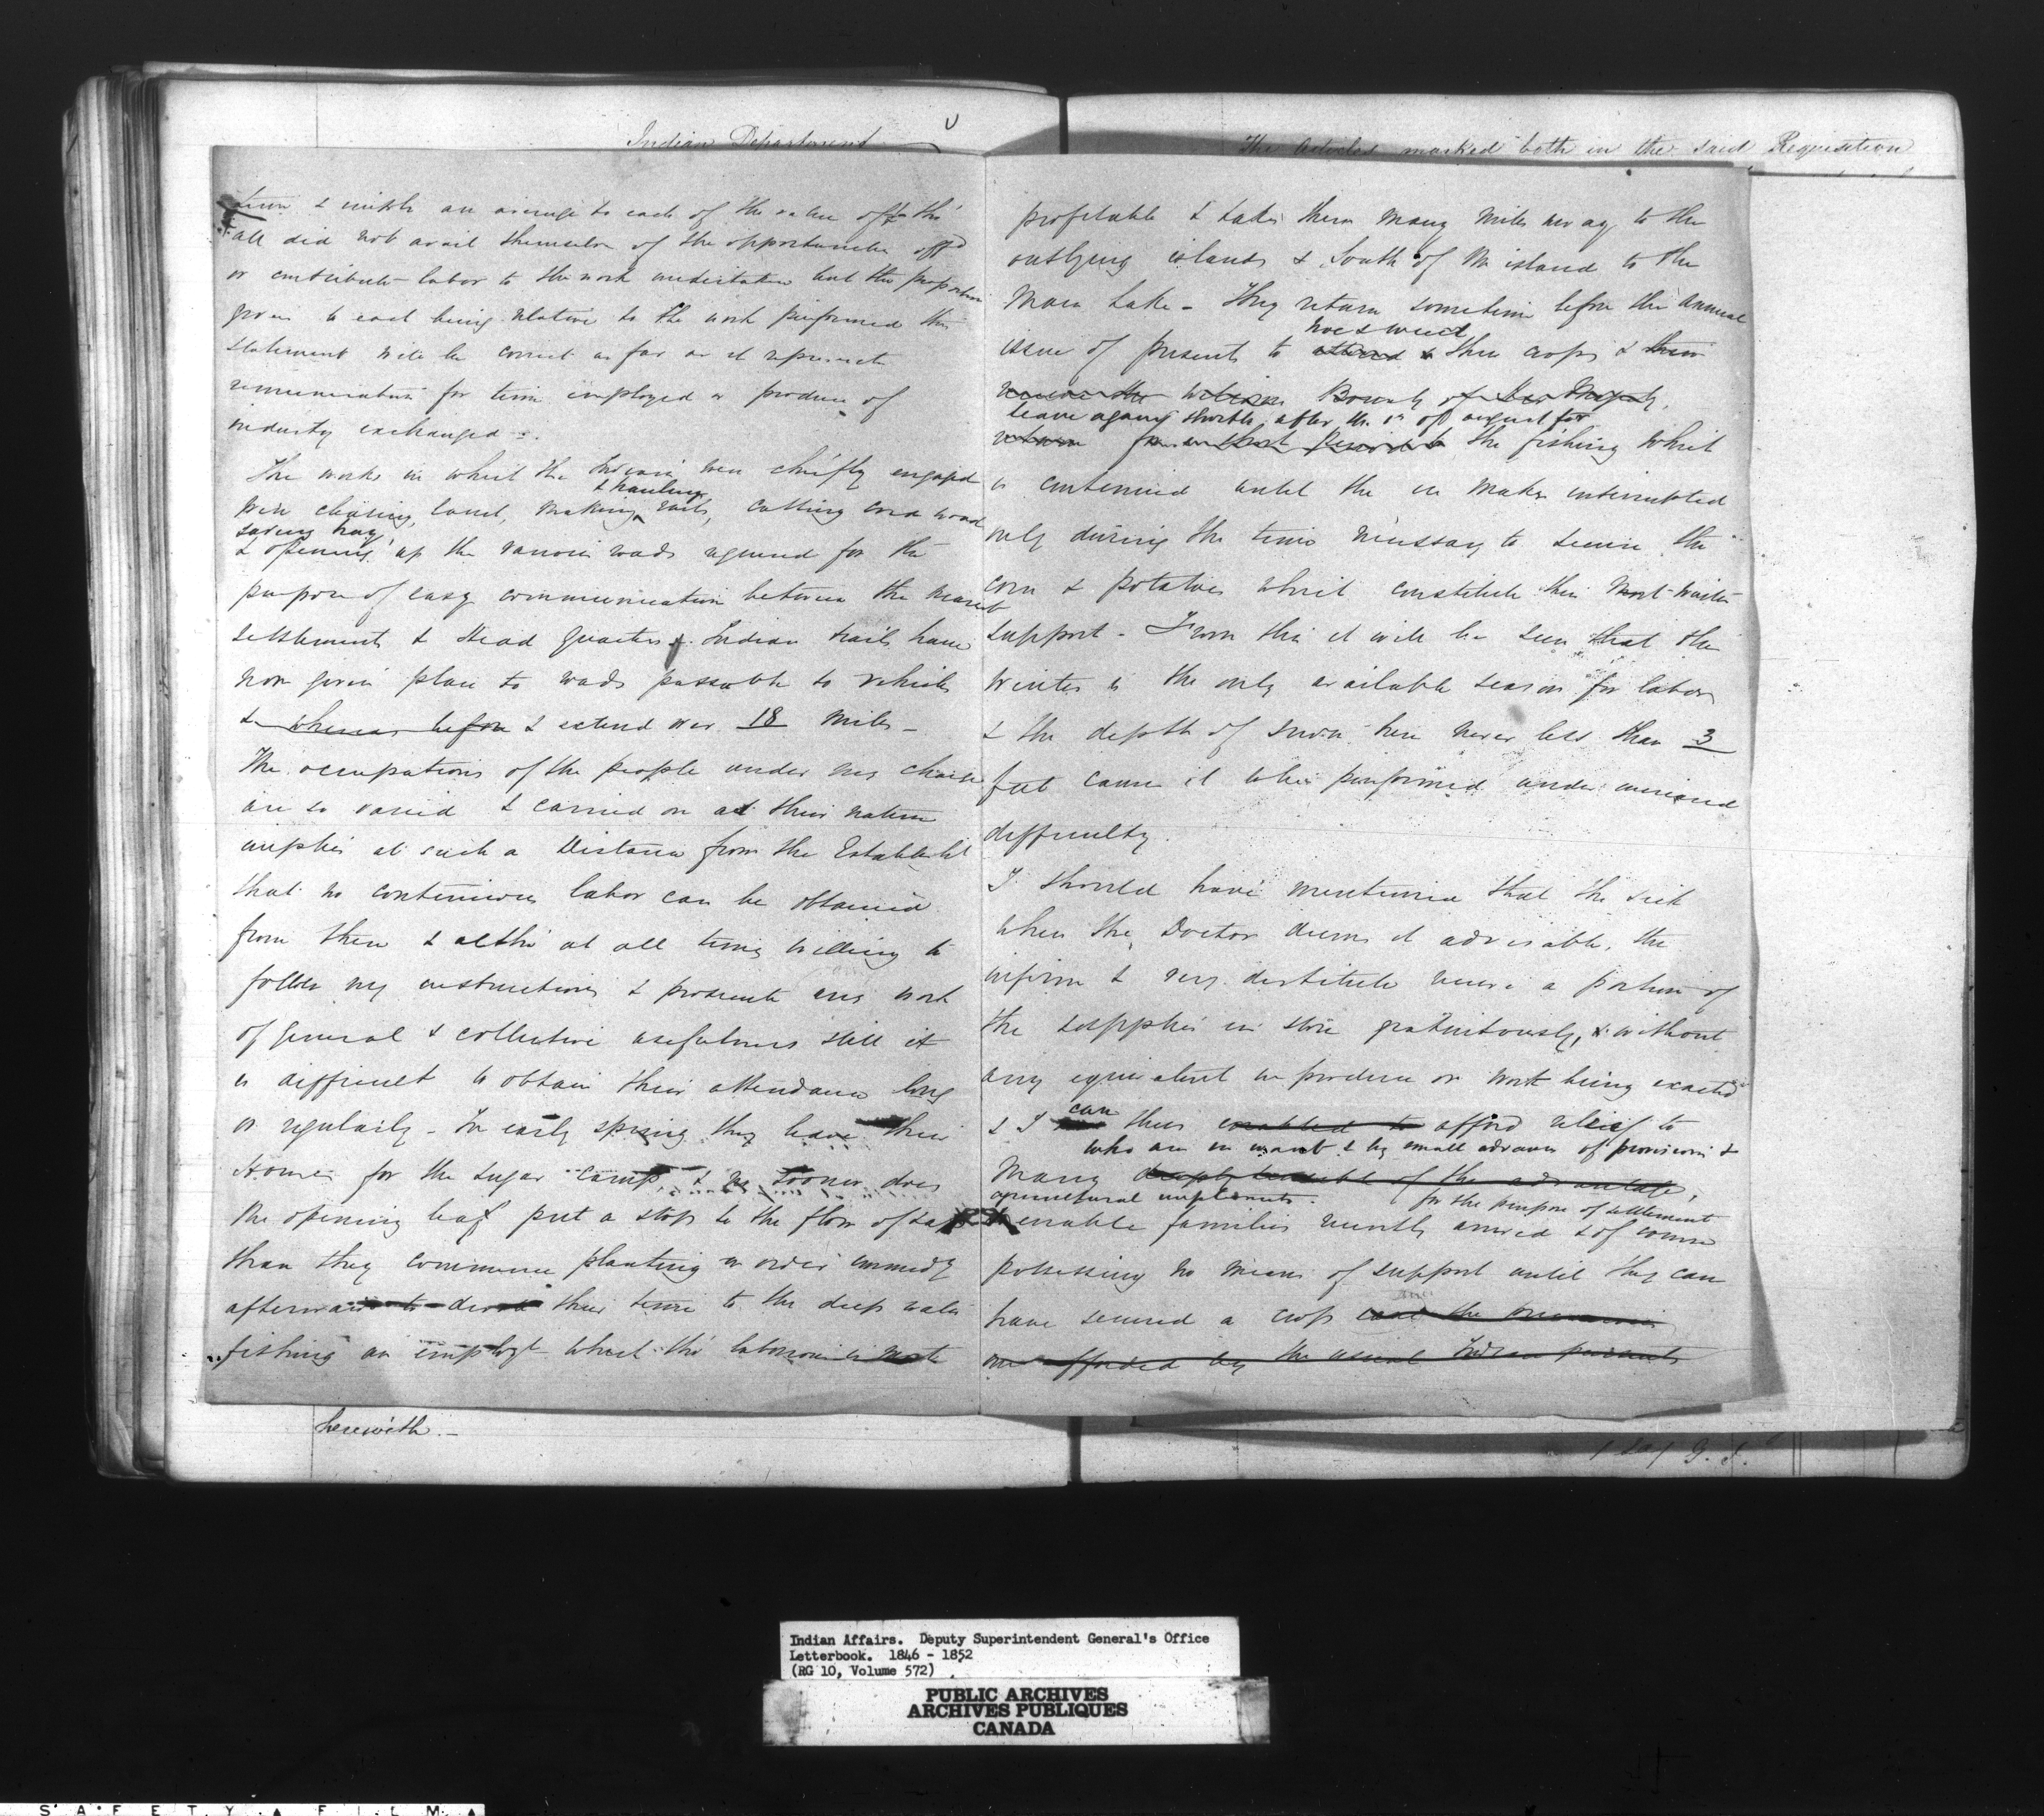 Indian Department
an average to each of the value of tho'
all did not avail themselves of the opportunities off'd
or contribute labor to the work undertaken but the proportion
given to each being relative to the work performed this
statement will be correct as far as it represents
remuneration for time employed or produce of
industry exchanged -.
The works in which the Indians were chiefly engaged
& hauling
were clearing land, making rails, cutting cord wood
saving hay
& opening up the various roads required for the
purpose of easy communication between the nearest
settlements & Head Quarters. Indian trails have
now given place to roads passable to vehicles
& whereas before & extend over 18 miles -
The occupations of the people under my charge
are so varied & carried on as their nature
implies at such a Distance from the Establisht
that no continuous labor can be obtained
from them & altho' at all times willing to
follow my instructions & prosecute any work
of general & collective usefulness still it
is difficult to obtain their attendance long
or regularly - In early spring they leave their
Homes for the sugar camps, & no sooner does
the opening leaf put a stop to the flow of sap
than they commence planting in order immedy
afterwards to devote their time to the deep water
fishing an employt which tho' laborious is most
herewith. -
The Articles marked both in the said Requisition
profitable & takes them many miles away to the
outlying islands & South of the island to the
Main Lake - They return sometime before the annual
hoe & weed
issue of presents to attend to their crops & then
receive the Bounty of Her Majesty,
leave again shortly after the 1st of august for
return for a short period to the fishing which
is continued until the ice makes interrupted
only during the time necessary to secure the
corn & potatoes which constitute their most winter
support - From this it will be seen that the
winter is the only available season for labor
& the depth of snow here never less than 3
feet causes it to be performed under increased
difficulty.
I should have mentioned that the sick
when the Doctor deems it advisable, the
infirm & very destitute receive a portion of
the supplies in store gratuitously, & without
any equivalent in produce or work being exacted
can
& I thus enabled to afford relief to
who are in want & by small advances of provisions &
many of the advantage,
agricultural implements. for the purpose of settlement
to enable families recently arrived & of course
possessing no means of support until they can
have secured a crop
are afforded by the usual Indian pursuits
G. I.
Indian Affairs. Deputy Superintendent General's Office
Letterbook. 1846 - 1852
(RG 10, Volume 572)
PUBLIC ARCHIVES
ARCHIVES PUBLIQUES
CANADA
SAFETY FILM